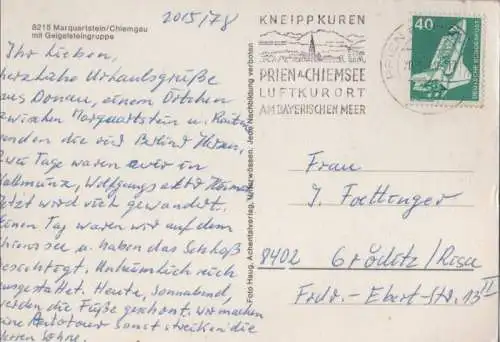 2015/78
8215 Marquartstein/Chiemgau
mit Geigelsteingruppe
Ihr Lieben,
herzliche Urlaubsgrüße
aus Donau, einem Örtchen
zwischen Marquartstein u. Reit im
senden die vier
Zwei Tage waren wir in
Kallmünz,
Jetzt wird viel gewandert.
Einen Tag waren wir auf dem
Chiemsee u. haben das Schloß
besichtigt. Unheimlich reich
ausgestattet. Heute, Sonnabend,
werden die Füße geschont, wir machen
eine Autotour sonst strecken die
ihre Sohne.
Foto Haug, Achentalverlag, Unterwössen. Jede Nachbildung verboten
KNEIPPKUREN
PRIEN A. CHIEMSEE
LUFTKURORT
AM BAYERISCHEN MEER
PRIEN
40
DEUTSCHE BUNDESPOST
Frau
J. Foettinger
8402 Gröditz/Riesa
Frdr.-Ebert-Str. 13 II